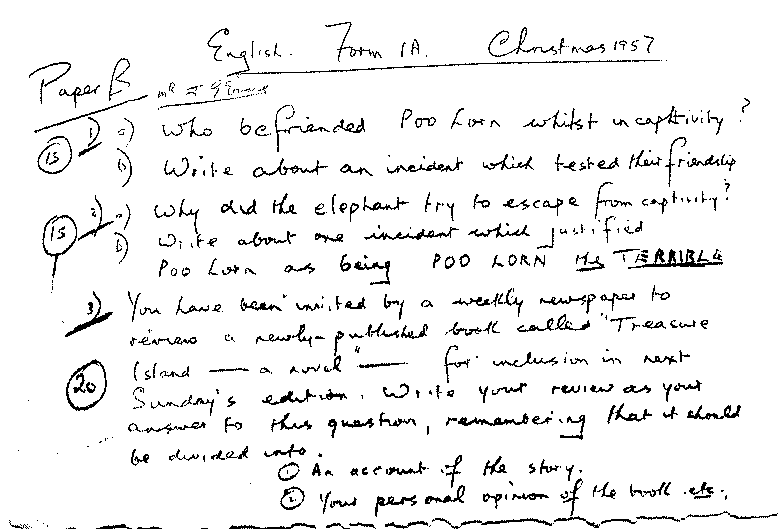 English. Form 1A. Christmas 1957
Paper B
15 1) a) Who befriended Poo Lorn whilst in captivity?
b) Write about an incident which tested their friendship
15 2) a) Why did the elephant try to escape from captivity?
b) Write about one incident which justified
Poo Lorn as being POO LORN the TERRIBLE
3) You have been invited by a weekly newspaper to
review a newly-published book called "Treasure
20 Island — a novel" — for inclusion in next
Sunday's edition. Write your review as your
answer to this question, remembering that it should
be divided into.
① An account of the story.
② Your personal opinion of the book etc.